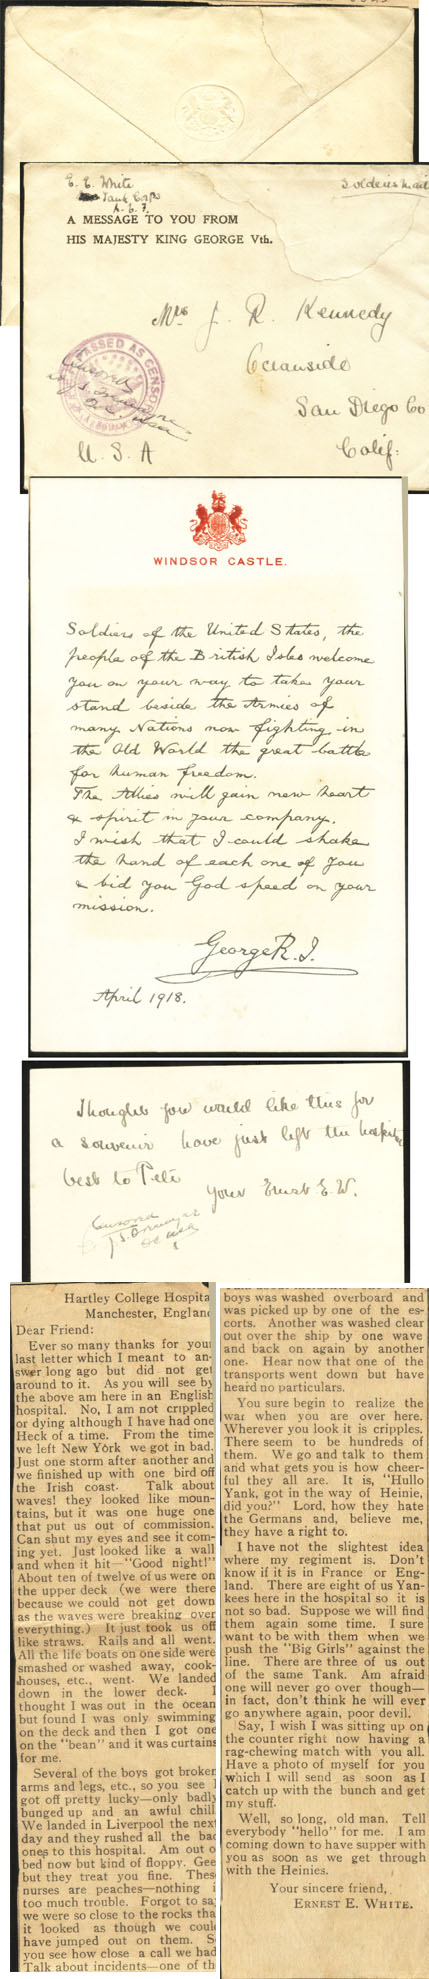 E. E. White
Tank Corps
A. E. F.
Soldiers Mail
A MESSAGE TO YOU FROM
HIS MAJESTY KING GEORGE Vth.
Mrs J. R. Kennedy
Oceanside
San Diego Co
Calif:
U. S. A
PASSED AS CENSORED
Censored
WINDSOR CASTLE.
Soldiers of the United States, the
people of the British Isles welcome
you on your way to take your
stand beside the Armies of
many Nations now fighting in
the Old World the great battle
for human freedom.
The Allies will gain new heart
& spirit in your company.
I wish that I could shake
the hand of each one of you
& bid you God speed on your
mission.
George R. I.
April 1918.
Thought you would like this for
a souvenir have just left the hospital
best to Pete
Your Ernest E. W.
Censored
Hartley College Hospita
Manchester, England
Dear Friend:
Ever so many thanks for your
last letter which I meant to an-
swer long ago but did not get
around to it. As you will see by
the above am here in an English
hospital. No, I am not crippled
or dying although I have had one
Heck of a time. From the time
we left New York we got in bad.
Just one storm after another and
we finished up with one bird off
the Irish coast. Talk about
waves! they looked like moun-
tains, but it was one huge one
that put us out of commission.
Can shut my eyes and see it com-
ing yet. Just looked like a wall
and when it hit—"Good night!"
About ten of twelve of us were on
the upper deck (we were there
because we could not get down
as the waves were breaking over
everything.) It just took us off
like straws. Rails and all went.
All the life boats on one side were
smashed or washed away, cook-
houses, etc., went. We landed
down in the lower deck. I
thought I was out in the ocean
but found I was only swimming
on the deck and then I got one
on the "bean" and it was curtains
for me.
Several of the boys got broken
arms and legs, etc., so you see I
got off pretty lucky—only badly
bunged up and an awful chill.
We landed in Liverpool the next
day and they rushed all the bad
ones to this hospital. Am out o
bed now but kind of floppy. Gee
but they treat you fine. Thes
nurses are peaches—nothing i
too much trouble. Forgot to sa
we were so close to the rocks tha
it looked as though we coul
have jumped out on them. S
you see how close a call we had
Talk about incidents—one of th
boys was washed overboard and
was picked up by one of the es-
corts. Another was washed clear
out over the ship by one wave
and back on again by another
one. Hear now that one of the
transports went down but have
heard no particulars.
You sure begin to realize the
war when you are over here.
Wherever you look it is cripples.
There seem to be hundreds of
them. We go and talk to them
and what gets you is how cheer-
ful they all are. It is, "Hullo
Yank, got in the way of Heinie,
did you?" Lord, how they hate
the Germans and, believe me,
they have a right to.
I have not the slightest idea
where my regiment is. Don't
know if it is in France or Eng-
land. There are eight of us Yan-
kees here in the hospital so it is
not so bad. Suppose we will find
them again some time. I sure
want to be with them when we
push the "Big Girls" against the
line. There are three of us out
of the same Tank. Am afraid
one will never go over though—
in fact, don't think he will ever
go anywhere again, poor devil.
Say, I wish I was sitting up on
the counter right now having a
rag-chewing match with you all.
Have a photo of myself for you
which I will send as soon as I
catch up with the bunch and get
my stuff.
Well, so long, old man. Tell
everybody "hello" for me. I am
coming down to have supper with
you as soon as we get through
with the Heinies.
Your sincere friend,
ERNEST E. WHITE.